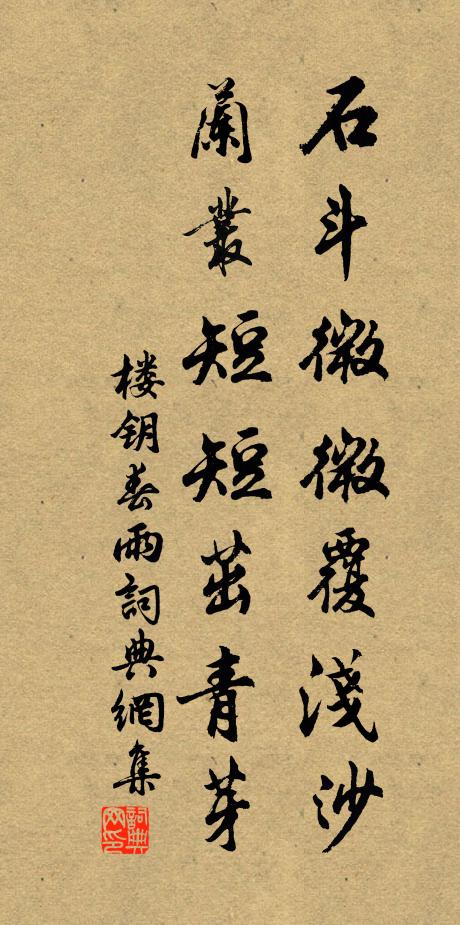 石斗微微覆淺沙
蘭叢短短茁青芽
楼钥春雨詞典網集
詞典网印